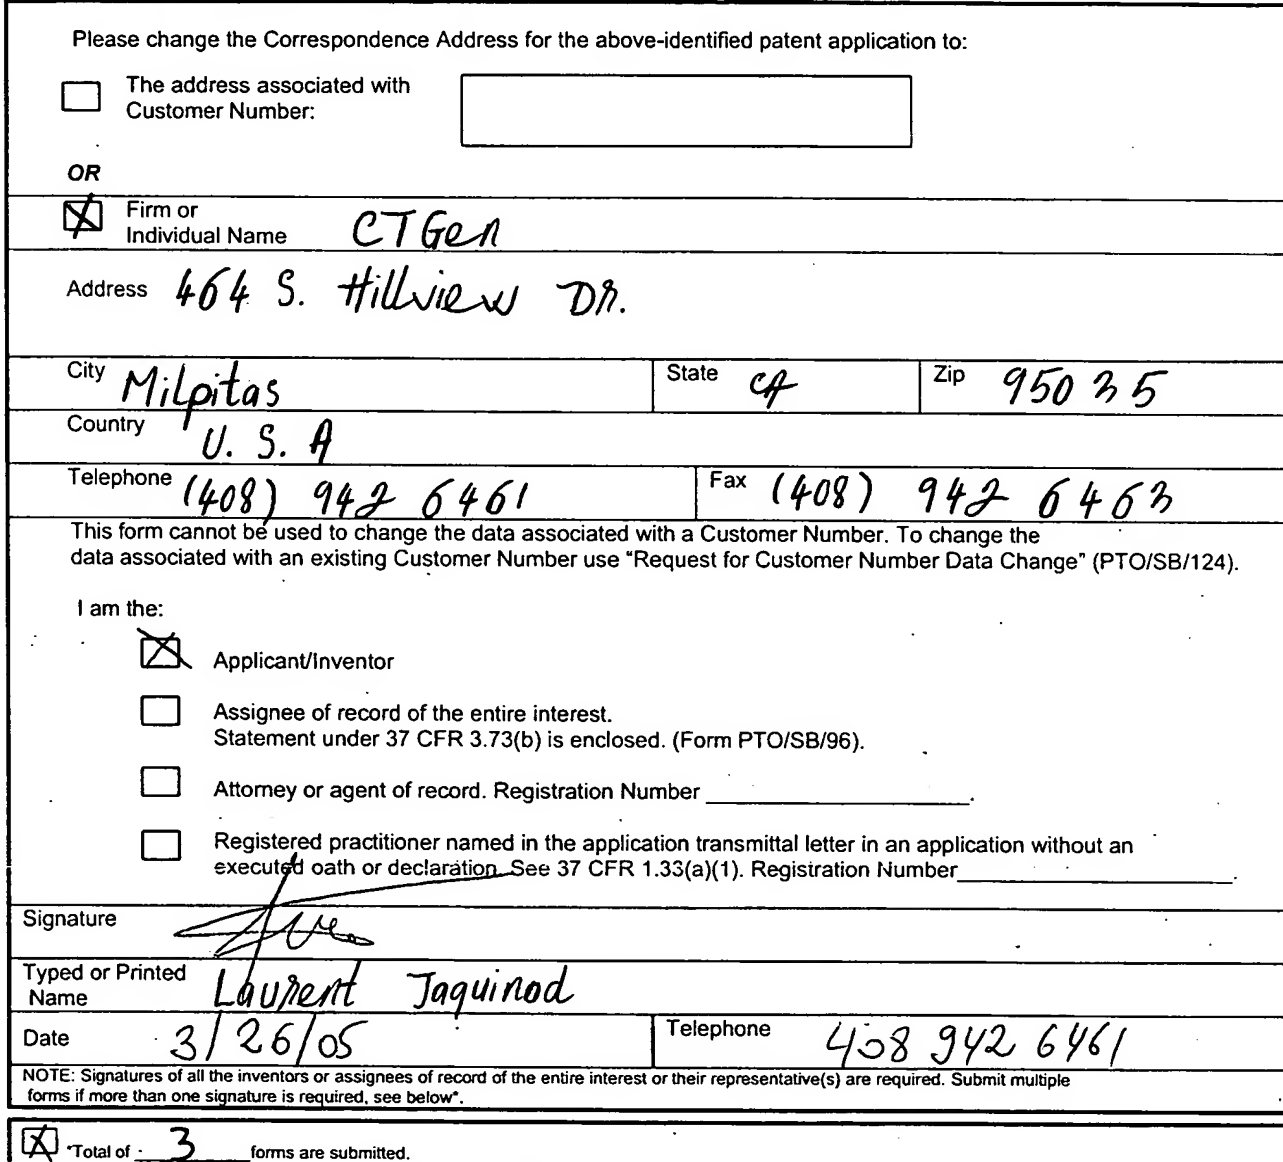 Please change the Correspondence Address for the above-identified patent application to:
The address associated with
Customer Number:
OR
Firm or
Individual Name CTGen
Address 464 S. Hillview Dr.
City Milpitas State CA Zip 95035
Country U. S. A
Telephone (408) 942 6461 Fax (408) 942 6463
This form cannot be used to change the data associated with a Customer Number. To change the
data associated with an existing Customer Number use "Request for Customer Number Data Change" (PTO/SB/124).
I am the:
Applicant/Inventor
Assignee of record of the entire interest.
Statement under 37 CFR 3.73(b) is enclosed. (Form PTO/SB/96).
Attorney or agent of record. Registration Number
Registered practitioner named in the application transmittal letter in an application without an
executed oath or declaration. See 37 CFR 1.33(a)(1). Registration Number
Signature
Typed or Printed
Name Laurent Jaquinod
Date 3/26/05 Telephone 408 942 6461
NOTE: Signatures of all the inventors or assignees of record of the entire interest or their representative(s) are required. Submit multiple
forms if more than one signature is required, see below*.
*Total of 3 forms are submitted.